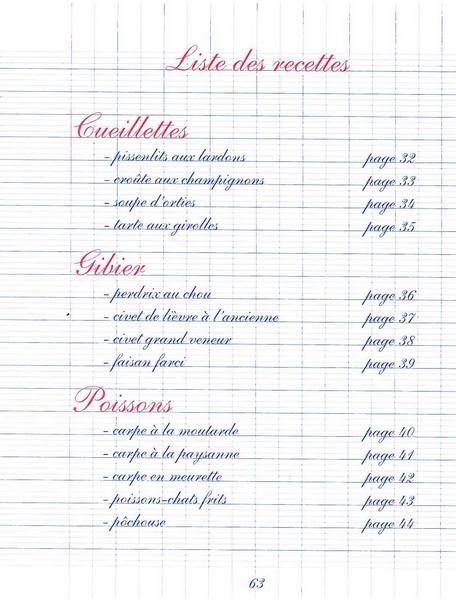 Liste des recettes
Cueillettes
- pissenlits aux lardons page 32
- croûte aux champignons page 33
- soupe d'orties page 34
- tarte aux girolles page 35
Gibier
- perdrix au chou page 36
- civet de lièvre à l'ancienne page 37
- civet grand veneur page 38
- faisan farci page 39
Poissons
- carpe à la moutarde page 40
- carpe à la paysanne page 41
- carpe en meurette page 42
- poissons-chats frits page 43
- pôchouse page 44
63